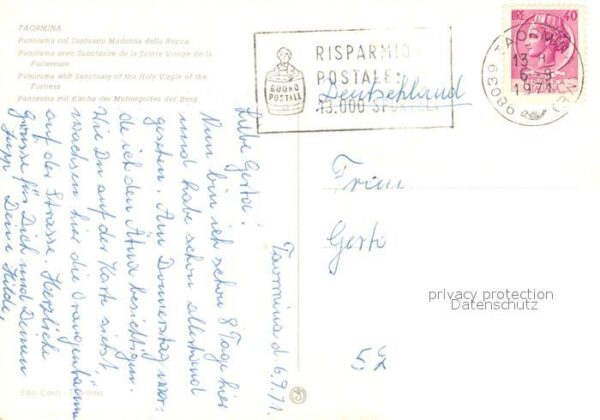 TAORMINA
Panorama col Santuario Madonna della Rocca
Panorama avec Sanctuaire de la Sainte Vierge de la
Forteresse
Panorama with Sanctuary of the Holy Virgin of the
Forrress
Panorama mit Kirche der Muttergottes der Burg
RISPARMIO
POSTALE:
13.000 SPORTELLI
BUONO
POSTALE
LIRE 40
98039 TAORMINA (ME)
13
6.9
1971
Deutschland
Taormina d. 6.9.71.
Liebe Gerta!
Nun bin ich schon 8 Tage hier
und habe schon allerhand
gesehen. Am Donnerstag wer-
de ich den Ätna besichtigen.
Wie Du auf der Karte siehst
wachsen hier die Orangenbäume
auf der Strasse. Herzliche
Grüsse für Dich und Deinen
Jupp Deine Hilde,
Frau
Gerta
52
privacy protection
Datenschutz
Ediz.